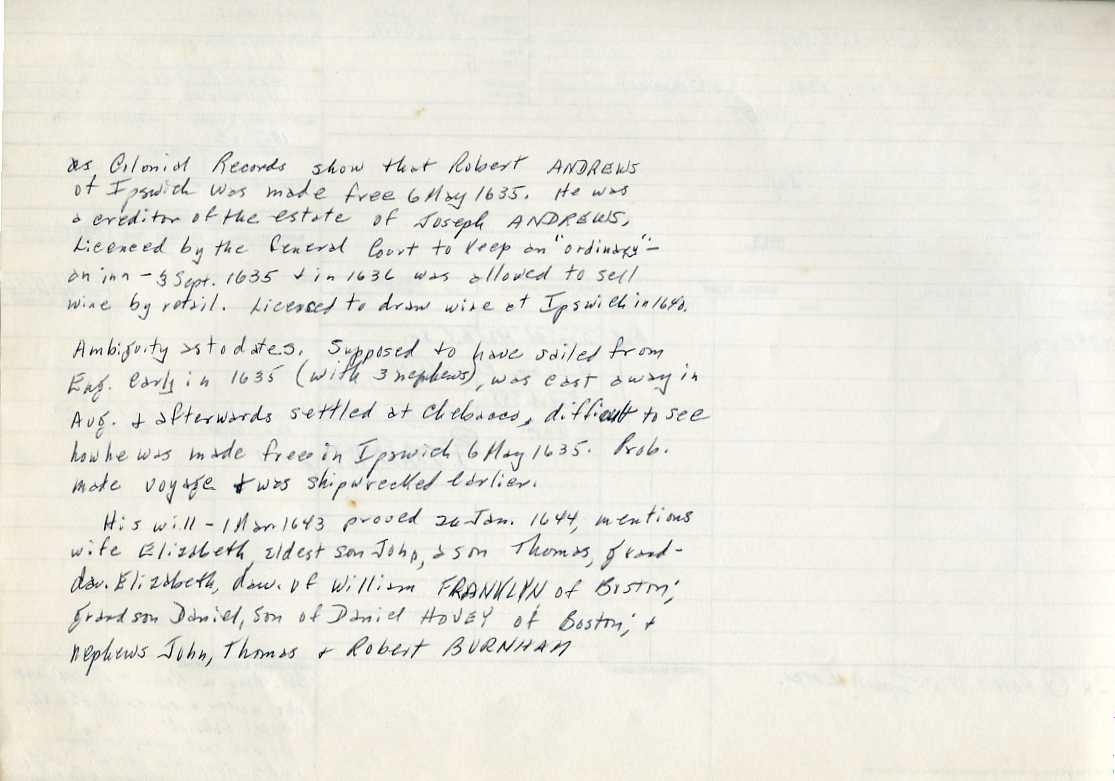 as Colonial Records show that Robert ANDREWS
of Ipswich was made free 6 May 1635. He was
a creditor of the estate of Joseph ANDREWS,
Licenced by the General Court to keep an "ordinary" -
an inn - 3 Sept. 1635 & in 1636 was allowed to sell
wine by retail. Licensed to draw wine at Ipswich in 1640.
Ambiguity as to dates. Supposed to have sailed from
Eng. early in 1635 (with 3 nephews), was cast away in
Aug. & afterwards settled at Chebacco, difficult to see
how he was made free in Ipswich 6 May 1635. Prob.
made voyage & was shipwrecked earlier.
His will - 1 Mar 1643 proved 26 Jan. 1644, mentions
wife Elizabeth, eldest son John, a son Thomas, grand-
dau. Elizabeth, dau. of William FRANKLYN of Boston;
grandson Daniel, son of Daniel HOVEY of Boston; &
nephews John, Thomas & Robert BURNHAM